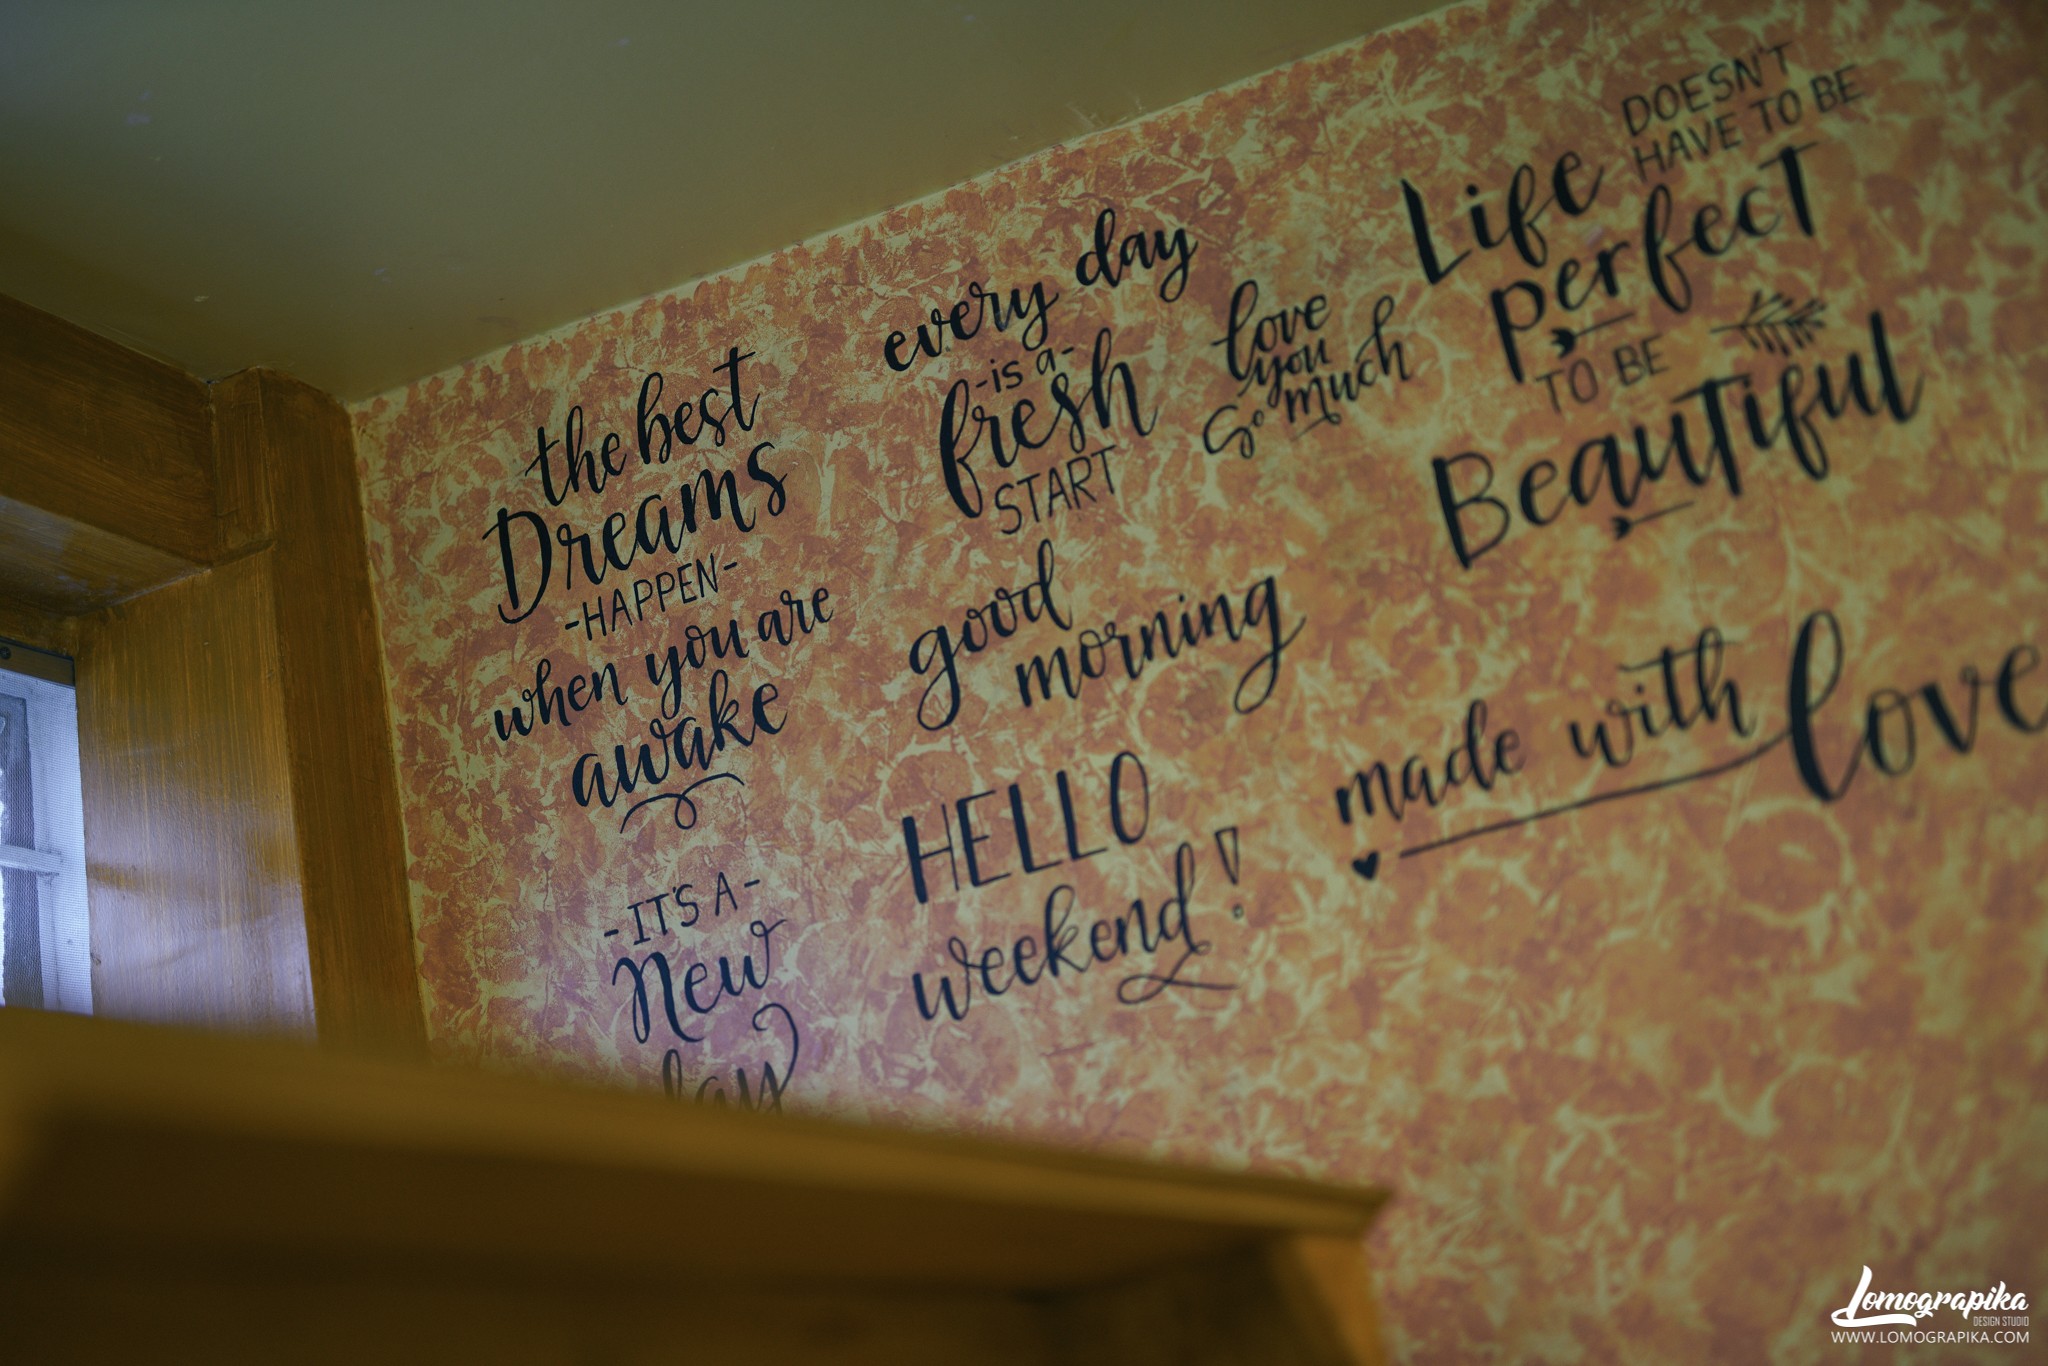 the best
Dreams
-HAPPEN-
when you are
awake
every day
-is a-
fresh
START
love
you
So much
Life DOESN'T
HAVE TO BE
perfect
TO BE
Beautiful
good
morning
made with love
HELLO
weekend!
-IT'S A-
New
day
Lomograpika
DESIGN STUDIO
WWW.LOMOGRAPIKA.COM